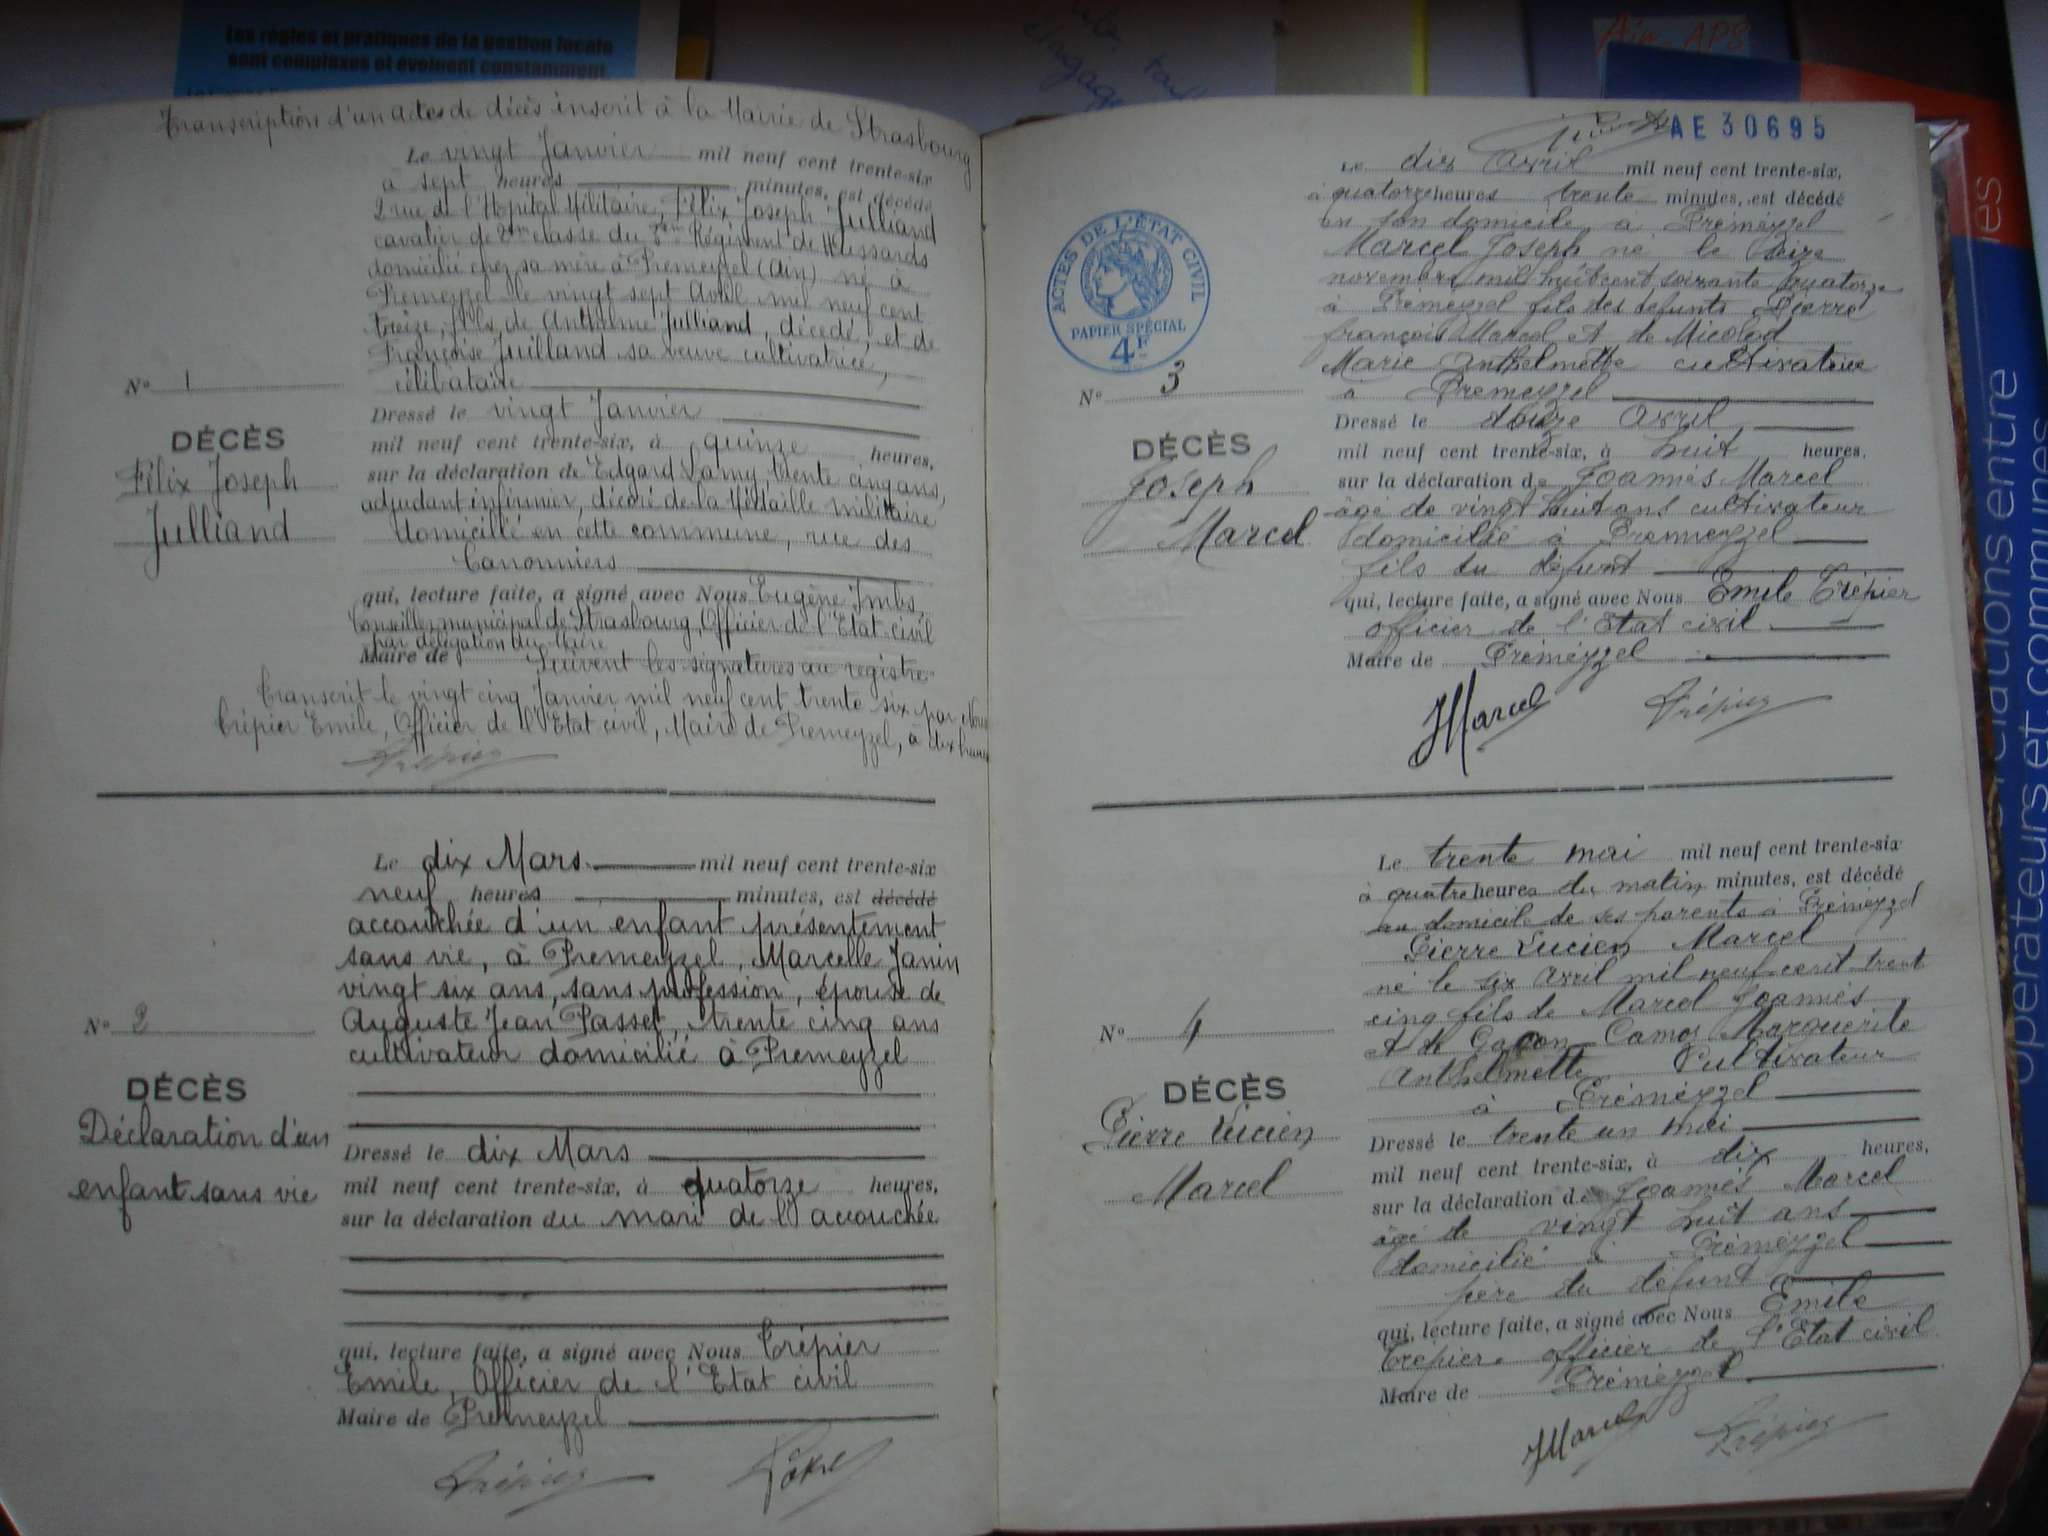 Les règles et pratiques de la gestion locale
sont complexes et évoluent constamment
Ain APS
opérateurs et communes
relations entre
Transcription d'un actes de décès inscrit à la Mairie de Strasbourg
Le vingt Janvier mil neuf cent trente-six
à sept heures minutes, est décédé
2 rue de l'Hôpital Militaire, Félix Joseph Julliand
cavalier de 2me classe du 3me Régiment de Hussards
domicilié chez sa mère à Premeyzel (Ain) né à
Premeyzel le vingt sept Avril mil neuf cent
treize, fils de Anthelme Julliand, décédé, et de
Françoise Juilland sa veuve cultivatrice,
célibataire
Nº 1
DÉCÈS
Félix Joseph
Julliand
Dressé le vingt Janvier
mil neuf cent trente-six, à quinze heures,
sur la déclaration de Edgard Lamy, trente cinq ans,
adjudant infirmier, décoré de la Médaille militaire
domicilié en cette commune, rue des
Canonniers
qui, lecture faite, a signé avec Nous Eugène Imbs,
Conseiller municipal de Strasbourg, Officier de l'Etat civil
par délégation du Maire
Maire de Suivent les signatures au registre
Transcrit le vingt cinq Janvier mil neuf cent trente six par Nous
Crépier Emile, Officier de l'Etat civil, Maire de Premeyzel, à dix heures
Crépier
Le dix Mars mil neuf cent trente-six
neuf heures minutes, est décédé
accouchée d'un enfant présentement
sans vie, à Premeyzel, Marcelle Janin
vingt six ans, sans profession, épouse de
Auguste Jean Passet, trente cinq ans
cultivateur domicilié à Premeyzel
Nº 2
DÉCÈS
Déclaration d'un
enfant sans vie
Dressé le dix Mars
mil neuf cent trente-six, à quatorze heures,
sur la déclaration du mari de l'accouchée
qui, lecture faite, a signé avec Nous Crépier
Emile, Officier de l'Etat civil
Maire de Premeyzel
Crépier
AE 30695
Le dix Avril mil neuf cent trente-six,
à quatorze heures trente minutes, est décédé
en son domicile à Prémeyzel
Marcel Joseph né le seize
novembre mil huit cent soixante quatorze
à Prémeyzel fils des defunts Pierre
françois Marcel et de Micolod
Marie Anthelmette cultivatrice
à Premeyzel
ACTES DE L'ÉTAT CIVIL
PAPIER SPÉCIAL
4F
Nº 3
DÉCÈS
Joseph
Marcel
Dressé le douze Avril
mil neuf cent trente-six, à huit heures,
sur la déclaration de Joannès Marcel
âgé de vingt huit ans cultivateur
domicilié à Premeyzel
fils du défunt
qui, lecture faite, a signé avec Nous Emile Crépier
officier de l'Etat civil
Maire de Prémeyzel
JMarcel Crépier
Le trente mai mil neuf cent trente-six
à quatre heures du matin minutes, est décédé
au domicile de ses parents à Prémeyzel
Pierre Lucien Marcel
né le six Avril mil neuf cent trent
cinq fils de Marcel Joannès
et de Gacon Camoz Marguerite
Anthelmette Cultivateur
à Prémeyzel
Nº 4
DÉCÈS
Pierre Lucien
Marcel
Dressé le trente un mai
mil neuf cent trente-six, à dix heures,
sur la déclaration de Joannès Marcel
âgé de vingt huit ans
domicilié à Prémeyzel
père du défunt
qui, lecture faite, a signé avec Nous Emile
Crépier officier de l'Etat civil
Maire de Prémeyzel
JMarcel Crépier